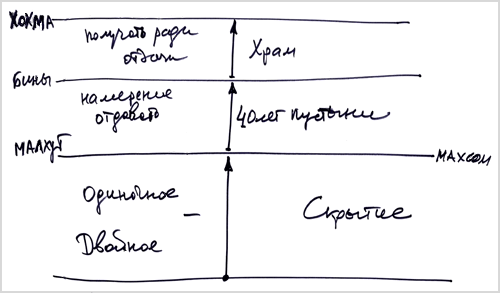 ХОХМА
получать ради
отдачи
Храм
БИНЫ
намерение
отдавать
40 лет пустыни
МАЛХУТ
МАХСОМ
Одиночное
–
Двойное
Скрытие